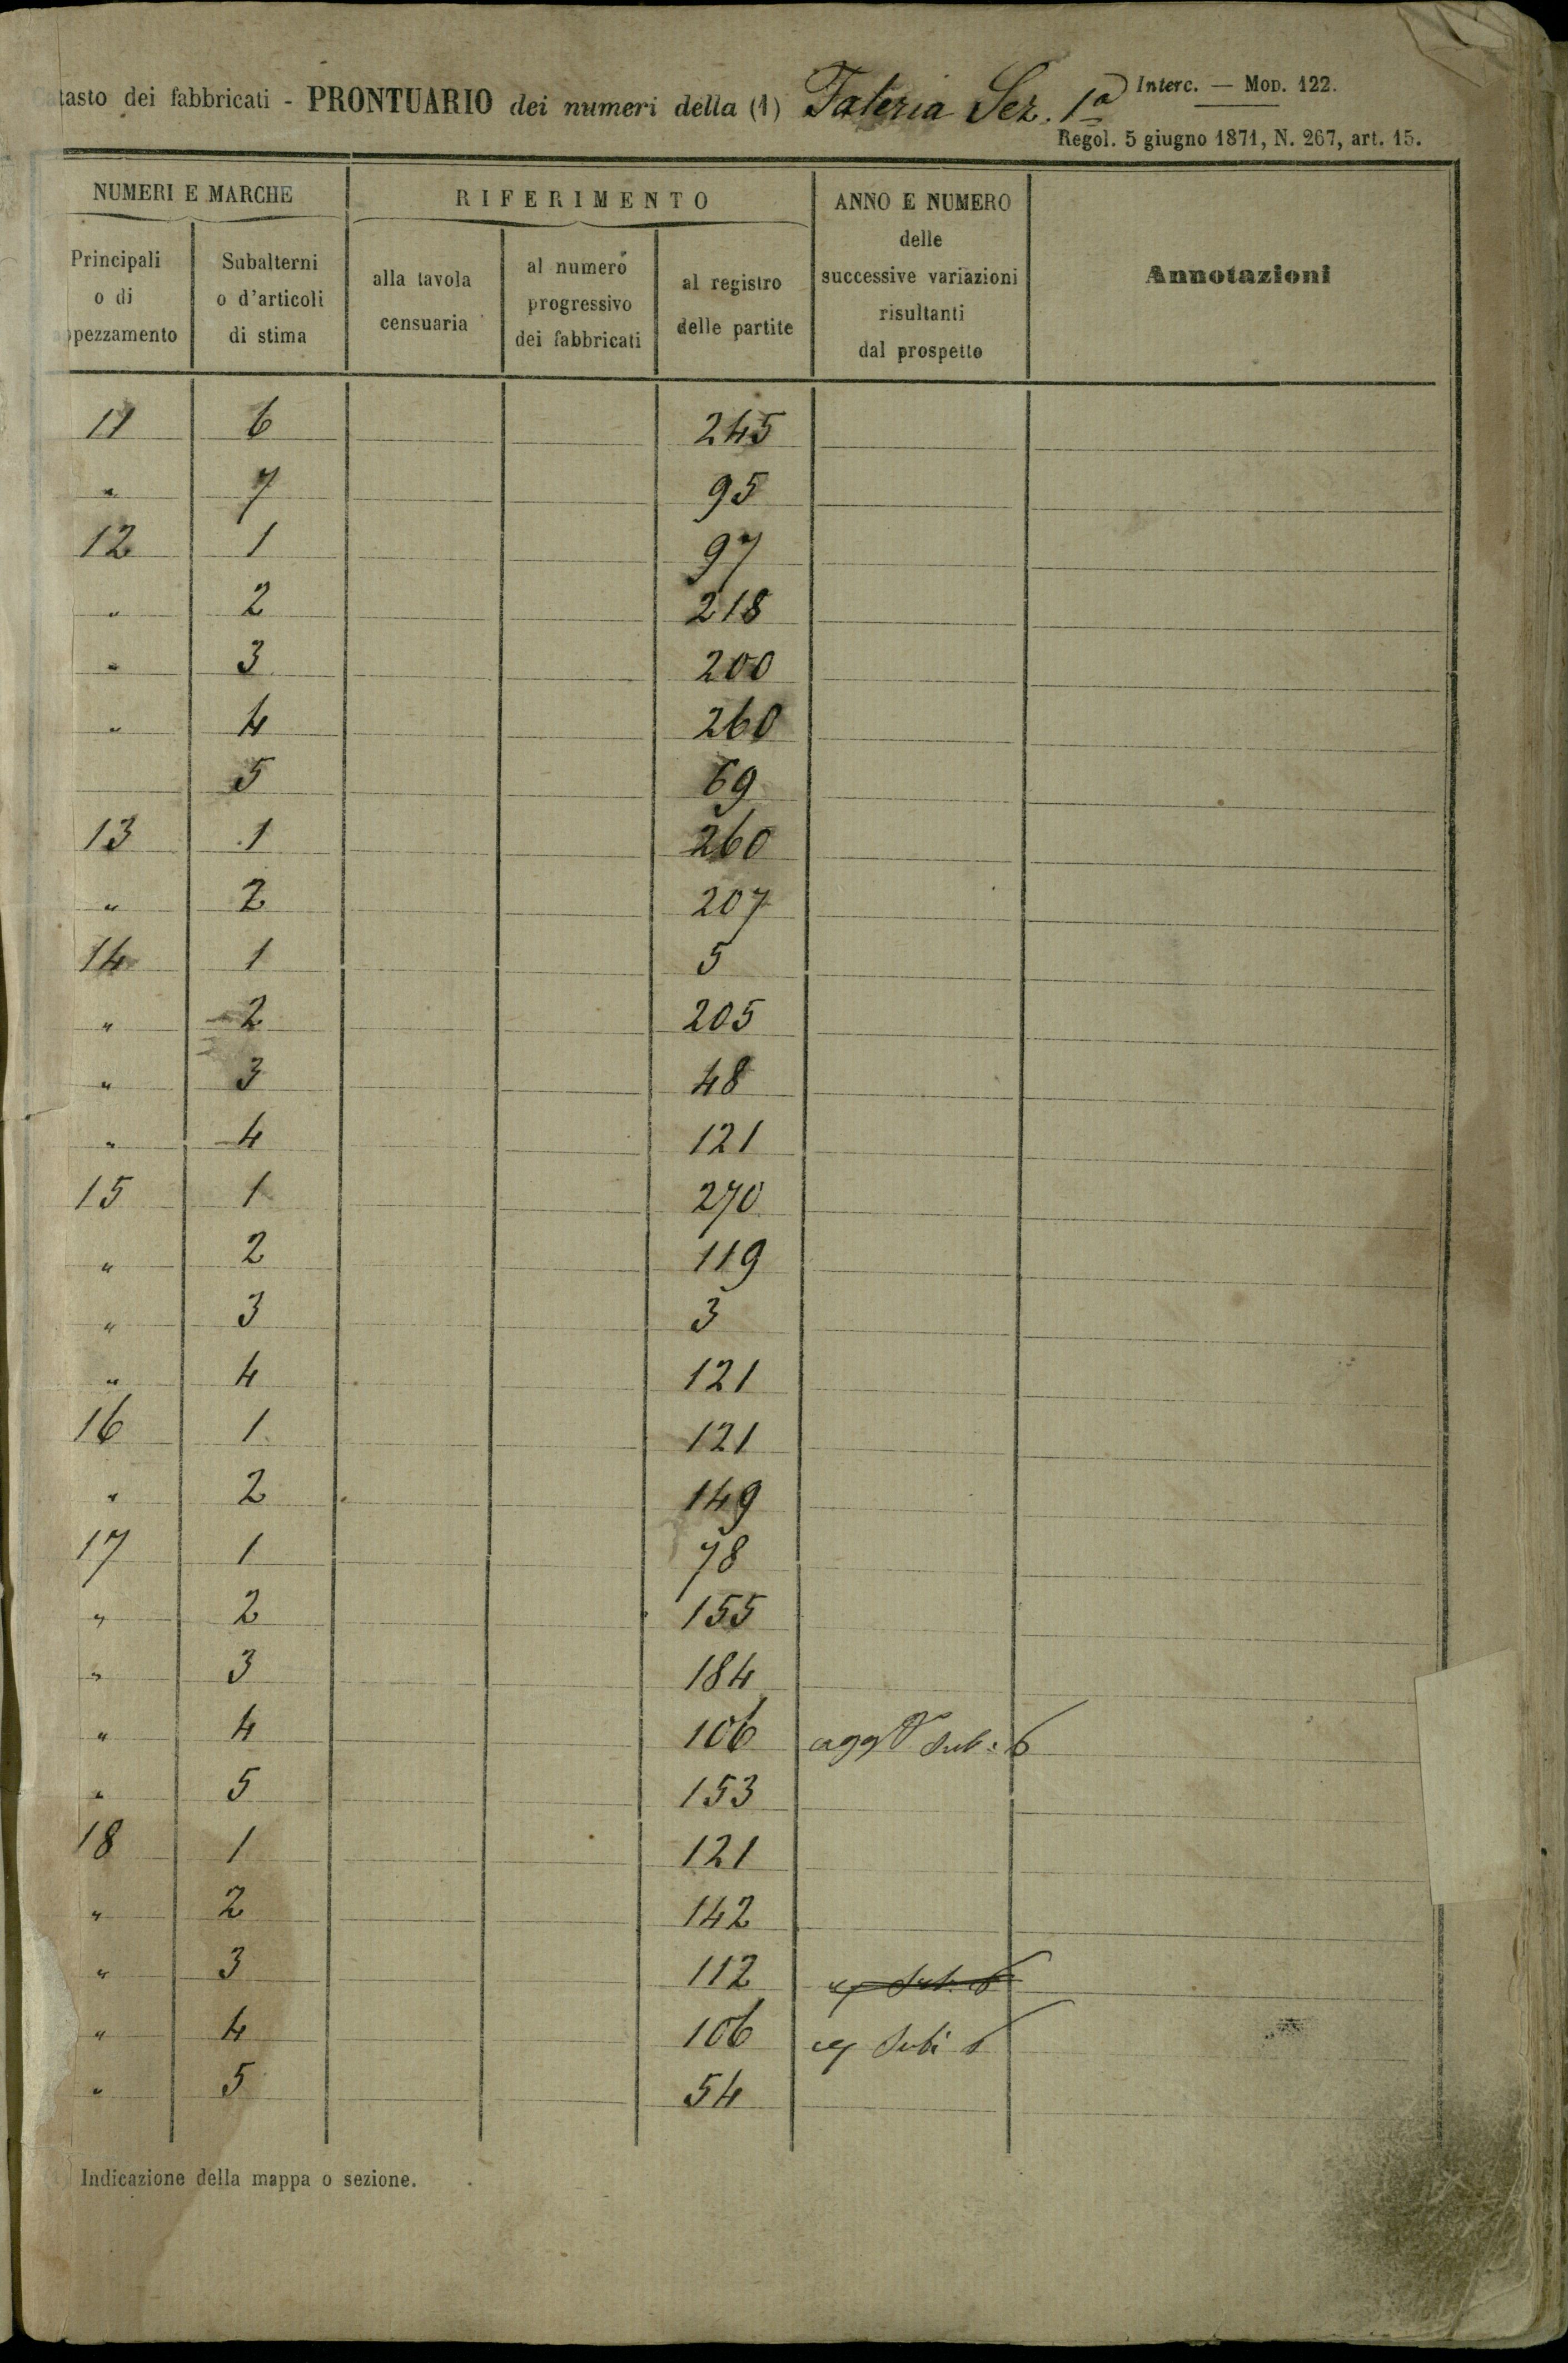 tasto dei fabbricati - PRONTUARIO dei numeri della (1) Faleria Sez. 1ª Interc. — Mod. 122.
Regol. 5 giugno 1871, N. 267, art. 15.
NUMERI E MARCHE RIFERIMENTO ANNO E NUMERO delle successive variazioni risultanti dal prospetto Annotazioni
Principali o di appezzamento Subalterni o d'articoli di stima alla tavola censuaria al numero progressivo dei fabbricati al registro delle partite
11 6 245
" 7 95
12 1 97
" 2 218
" 3 200
" 4 260
5 69
13 1 260
" 2 207
14 1 5
" 2 205
" 3 48
" 4 121
15 1 270
" 2 119
" 3 3
" 4 121
16 1 121
" 2 149
17 1 78
" 2 155
" 3 184
" 4 106 sub. 6
" 5 153
18 1 121
" 2 142
" 3 112
" 4 106
" 5 54
Indicazione della mappa o sezione.